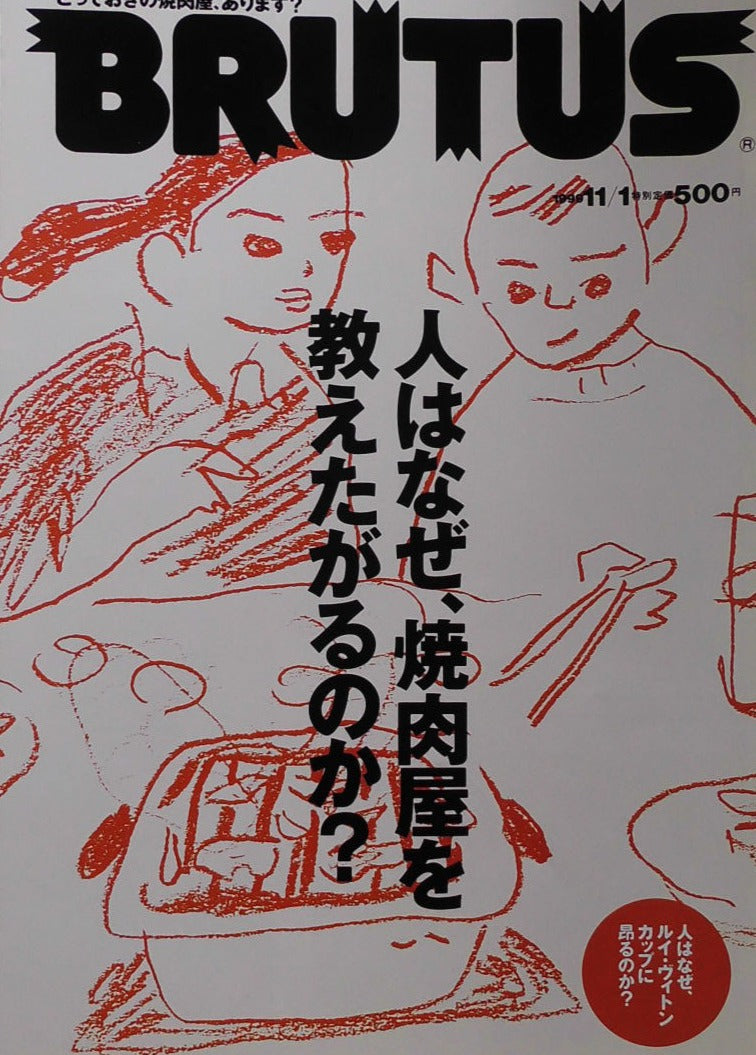 とっておきの焼肉屋、あります?
BRUTUS
®
11/1 特別定価500円
人はなぜ、焼肉屋を
教えたがるのか?
人はなぜ、
ルイ・ヴィトン
カップに
昂るのか?